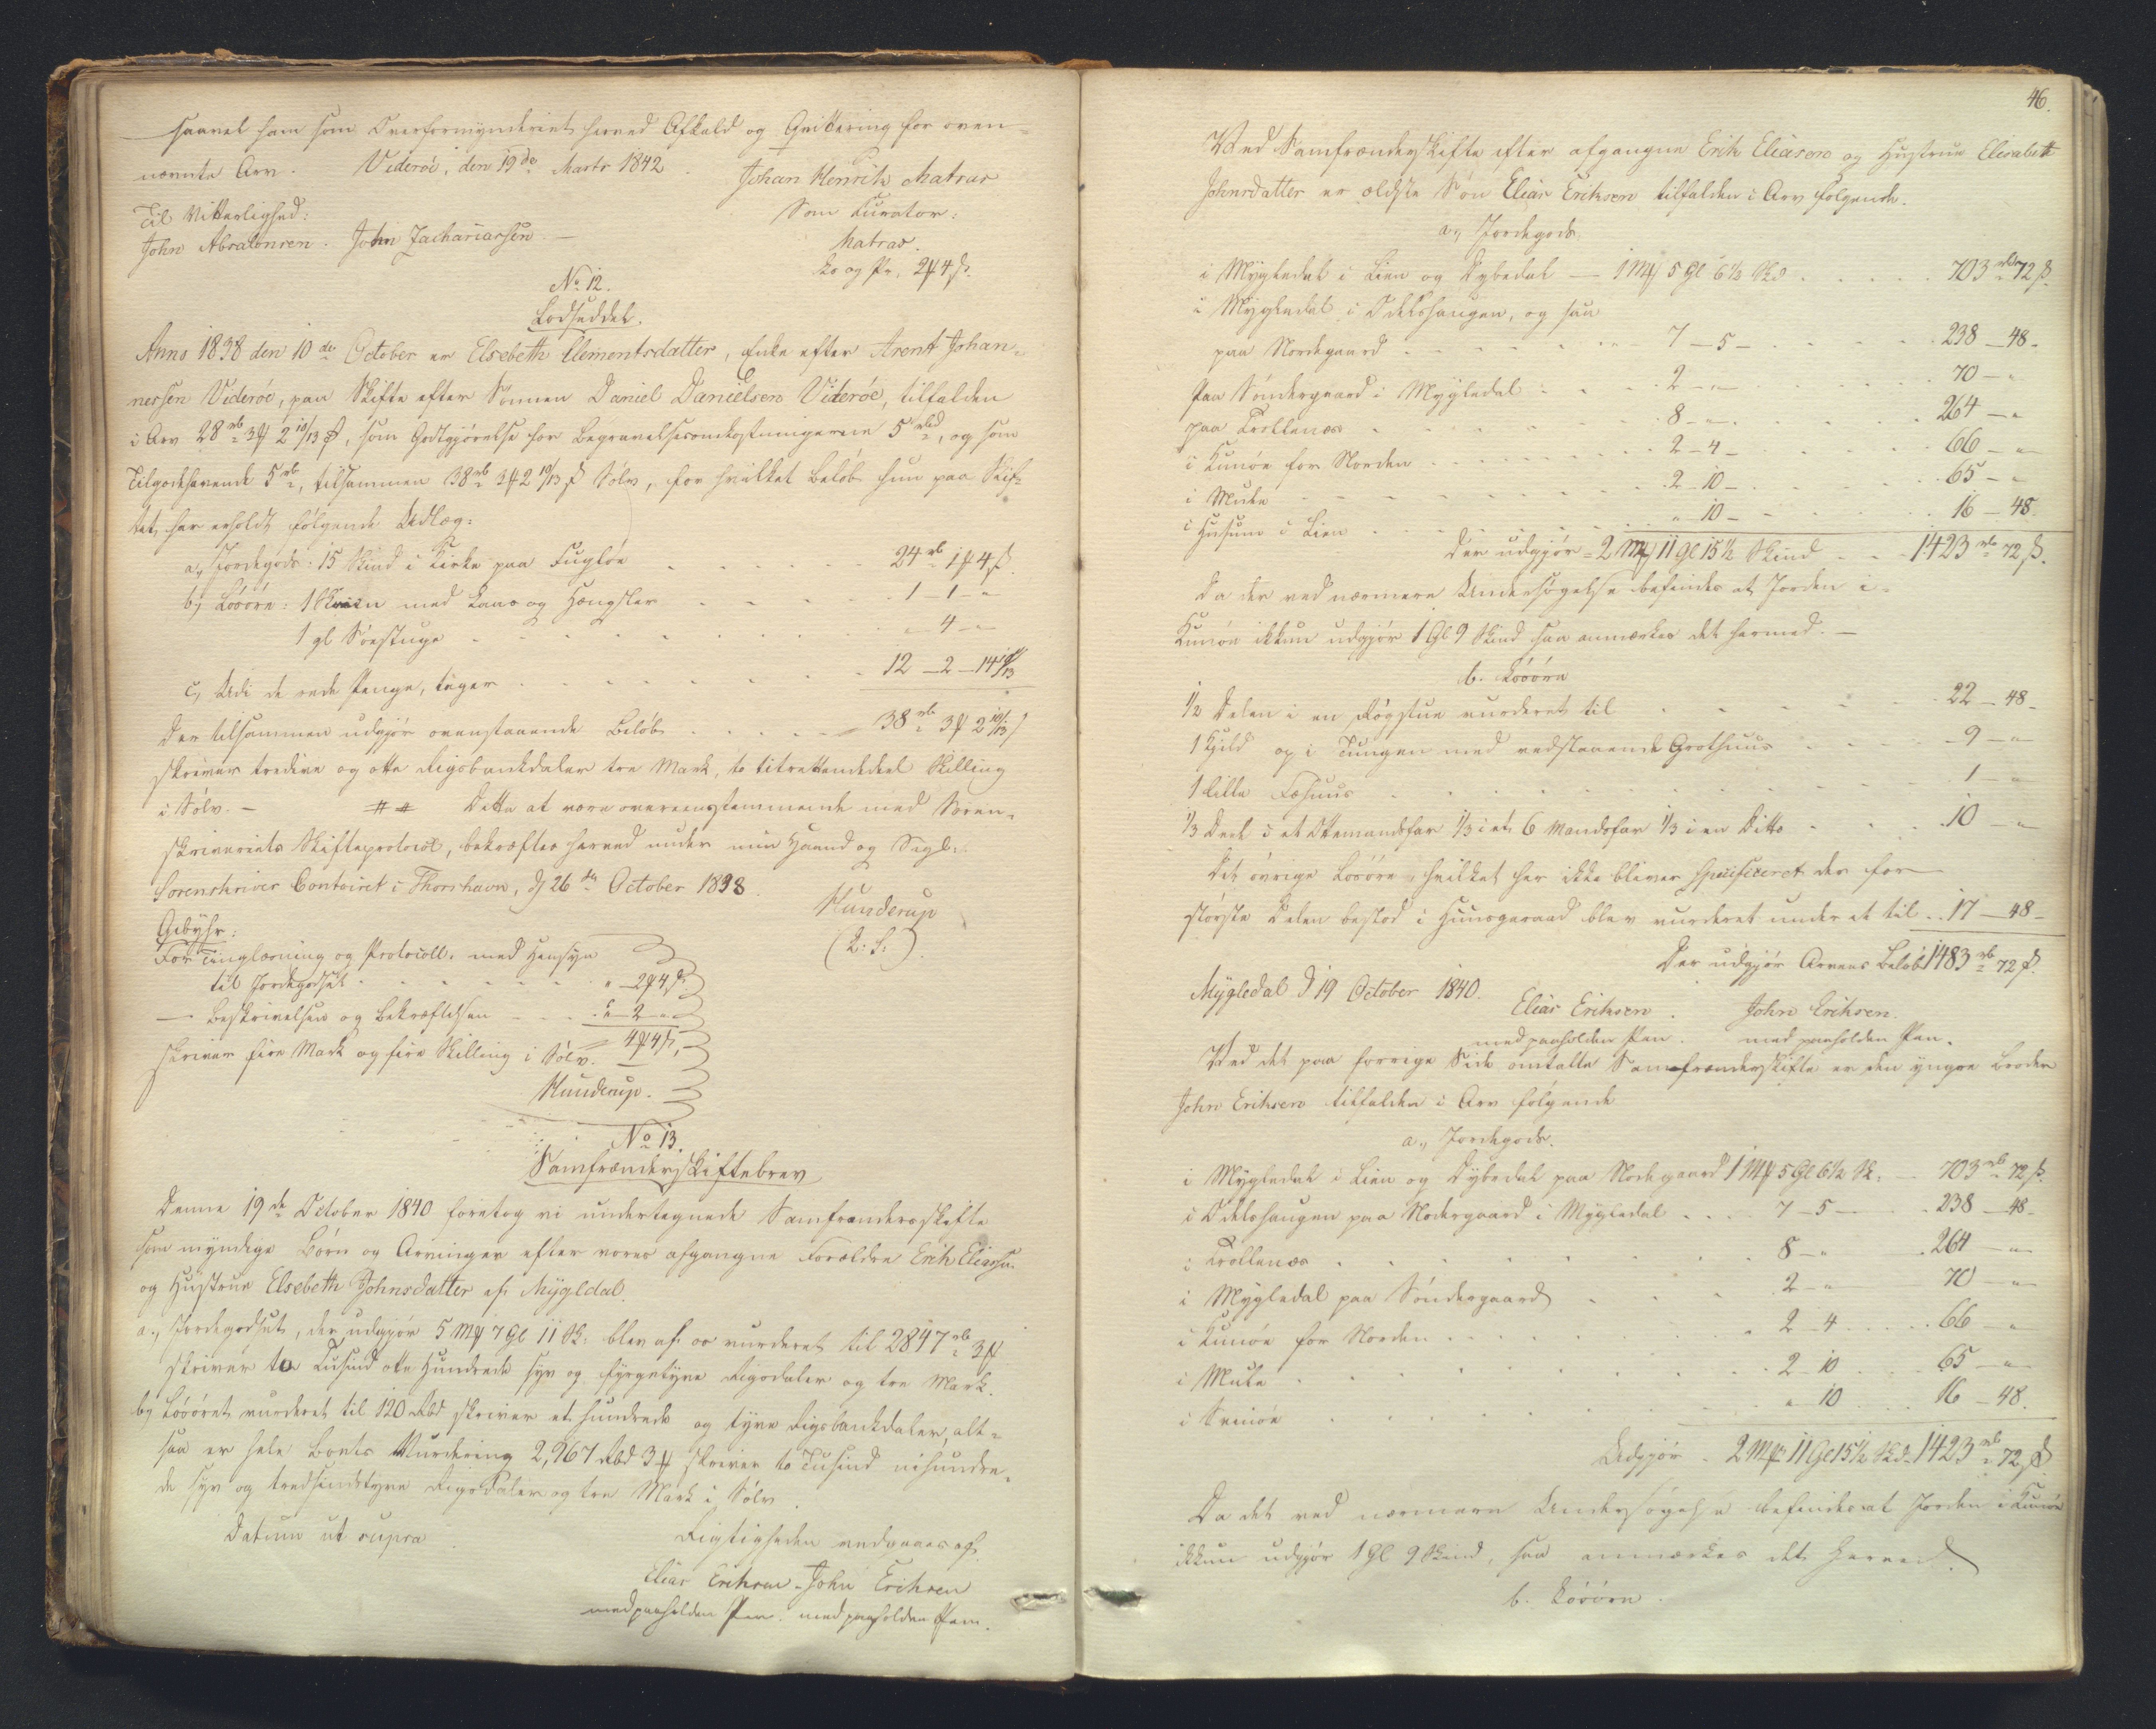 saavel ham som Overformynderiet herved Afkald og Qvittering for oven-
nævnte Arv. Viderøe, den 19de Marts 1842.
Johan Henrik Matras
Til Vitterlighed:
Som Curator:
John Absalonsen. John Zachariassen. —
Matras.
No 12.
Lodseddel.
Anno 1838 den 10de October er Elsebeth Clementsdatter, Enke efter Arent Johan-
nessen Viderøe, paa Skifte efter Sønnen Daniel Danielsen Viderøe, tilfalden
i Arv 28 rb 3 ℔ 2 10/13 ß, som Godtgjørelse for Begravelsesomkostningerne 5 rbd, og som
Tilgodehavende 5 rb, tilsammen 38 rb 3 ℔ 2 10/13 ß Sølv, for hvilket Beløb hun paa Skif-
tet har erholdt følgende Udlæg:
a, Jordegods: 15 Skind i Kirke paa Fugløe . . . . 24 rb 1 ℔ 4 ß.
b, Løsøre: 1 Skrin med Laas og Hængsler . . . . 1 — 1 — "
1 gl Søestuge . . . . " — 4 — "
c, Udi de rede Penge, tager . . . . 12 — 2 — 14 10/13
Der tilsammen udgjør ovenstaaende Beløb . . . . 38 rb 3 ℔ 2 10/13 ß
skriver tredive og otte Rigsbankdaler tre Mark, to titrettendedeel Skilling
i Sølv. — Dette at være overeensstemmende med Soren-
skriveriets Skifteprotocol, bekræftes herved under min Haand og Segl.
Sorenskriver Contoiret i Thorshavn, d 26de October 1838.
Hunderup
(L: S:).
Gebyhr:
For Tinglæsning og Protocoll. med Hensyn
til Jordegodset . . . . " — 2 ℔ 4 ß.
— Beskrivelsen og Bekræftelsen . . . . " — 2 — "
4 ℔ 4 ß.
skriver fire Mark og fire Skilling i Sølv.
Hunderup.
No 13.
Samfrændeskiftebrev
Denne 19de October 1840 foretog vi undertegnede Samfrændeskifte
som myndige Børn og Arvinger efter vores afgangne Forældre Erik Eliasen
og Hustrue Elsebeth Johnsdatter af Mygldal.
a., Jordegodset, der udgjør 5 M℔ 7 Gl 11 Sk: blev af os vurderet til 2847 rb 3 ℔
skriver to Tusind otte Hundrede syv og fyrgetyve Rigsdaler og tre Mark.
b, Løsøret vurderet til 120 Rbd skriver et hundrede og tyve Rigsbankdaler, alt-
saa er hele Boets Vurdering 2,967 Rbd 3 ℔ skriver to Tusind nihundre-
de syv og tredsindstyve Rigsdaler og tre Mark i Sølv.
Datum ut supra.
Rigtigheden vedgaaes af
Elias Eriksen — John Eriksen
med paaholden Pen. med paaholden Pen.
46.
Ved Samfrændeskifte efter afgangne Erik Eliasen og Hustrue Elisabeth
Johnsdatter er ældste Søn Elias Eriksen tilfalden i Arv følgende.
a., Jordegods.
i Mygledal i Lien og Dybedal — 1 M℔ 5 Gl 6½ Skd . . . . 703 rbd 72 ß.
i Mygledal i Odelshaugen, og saa
paa Nordegaard . . . . 7 — 5 — . . . . 238 — 48 -
Paa Søndergaard i Mygledal . . . . 2 — " — . . . . 70 — "
paa Trollenæs . . . . 8 — " . . . . 264 — "
i Kunøe for Norden . . . . 2 — 4 — . . . . 66 — "
i Mule . . . . 2 — 10 — . . . . 65 — "
i Husum i Lien . . . . " 10 — . . . . 16 — 48.
Der udgjør 2 M℔ 11 gl 15½ Skind . . . 1423 rb 72 ß.
Da der ved nærmere Undersøgelse befindes at Jorden i
Kunøe ikkun udgjør 1 Gl 9 Skind saa anmærkes det hermed. —
b. Løsøre
1/2 Delen i en Røgstue vurderet til . . . . 22 — 48 -
1 Hjeld op i Tungen med vedstaaende Grothuus . . . . 9 — "
1 lille Fæhuus . . . . 1 — "
1/3 Deel i et Ottemandsfar 1/3 i et 6 Mandsfar 1/3 i en Ditto . . . . 10 — "
Det øvrige Løsøre hvilket her ikke bliver Specificeret der for
største Delen bestod i Huusgeraad blev vurderet under et til . . 17 — 48 -
Der udgjør Arvens Beløb 1483 rb 72 ß.
Mygledal d 19 October 1840.
Elias Eriksen. John Eriksen.
med paaholden Pen. med paaholden Pen.
Ved det paa forrige Side omtalte Samfrændeskifte er den yngre Broder
John Eriksen tilfalden i Arv følgende
a., Jordegods.
i Mygledal i Lien og Dybedal paa Nordegaard 1 M℔ 5 Gl 6½ Sk: — 703 rb 72 ß.
i Odelshaugen paa Nordegaard i Mygledal . . . . 7 — 5 — . . 238 — 48 -
i Trollenæs . . . . 8 — " . 264 — "
i Mygledal paa Søndergaard . . . . 2 — " 70 — "
i Kunøe for Norden . . . . 2 — 4 . . . . 66 — "
i Mule . . . . 2 — 10 . . 65 — "
i Svinøe . . . . " 10 . . . 16 — 48.
Udgjør . 2 M℔ 11 Gl 15½ Skd. 1423 rb 72 ß
Da det ved nærmere Undersøgelse befindes at Jorden i Kunøe
ikkun udgjør 1 Gl 9 Skind, saa anmærkes det herved.
b. Løsøre.